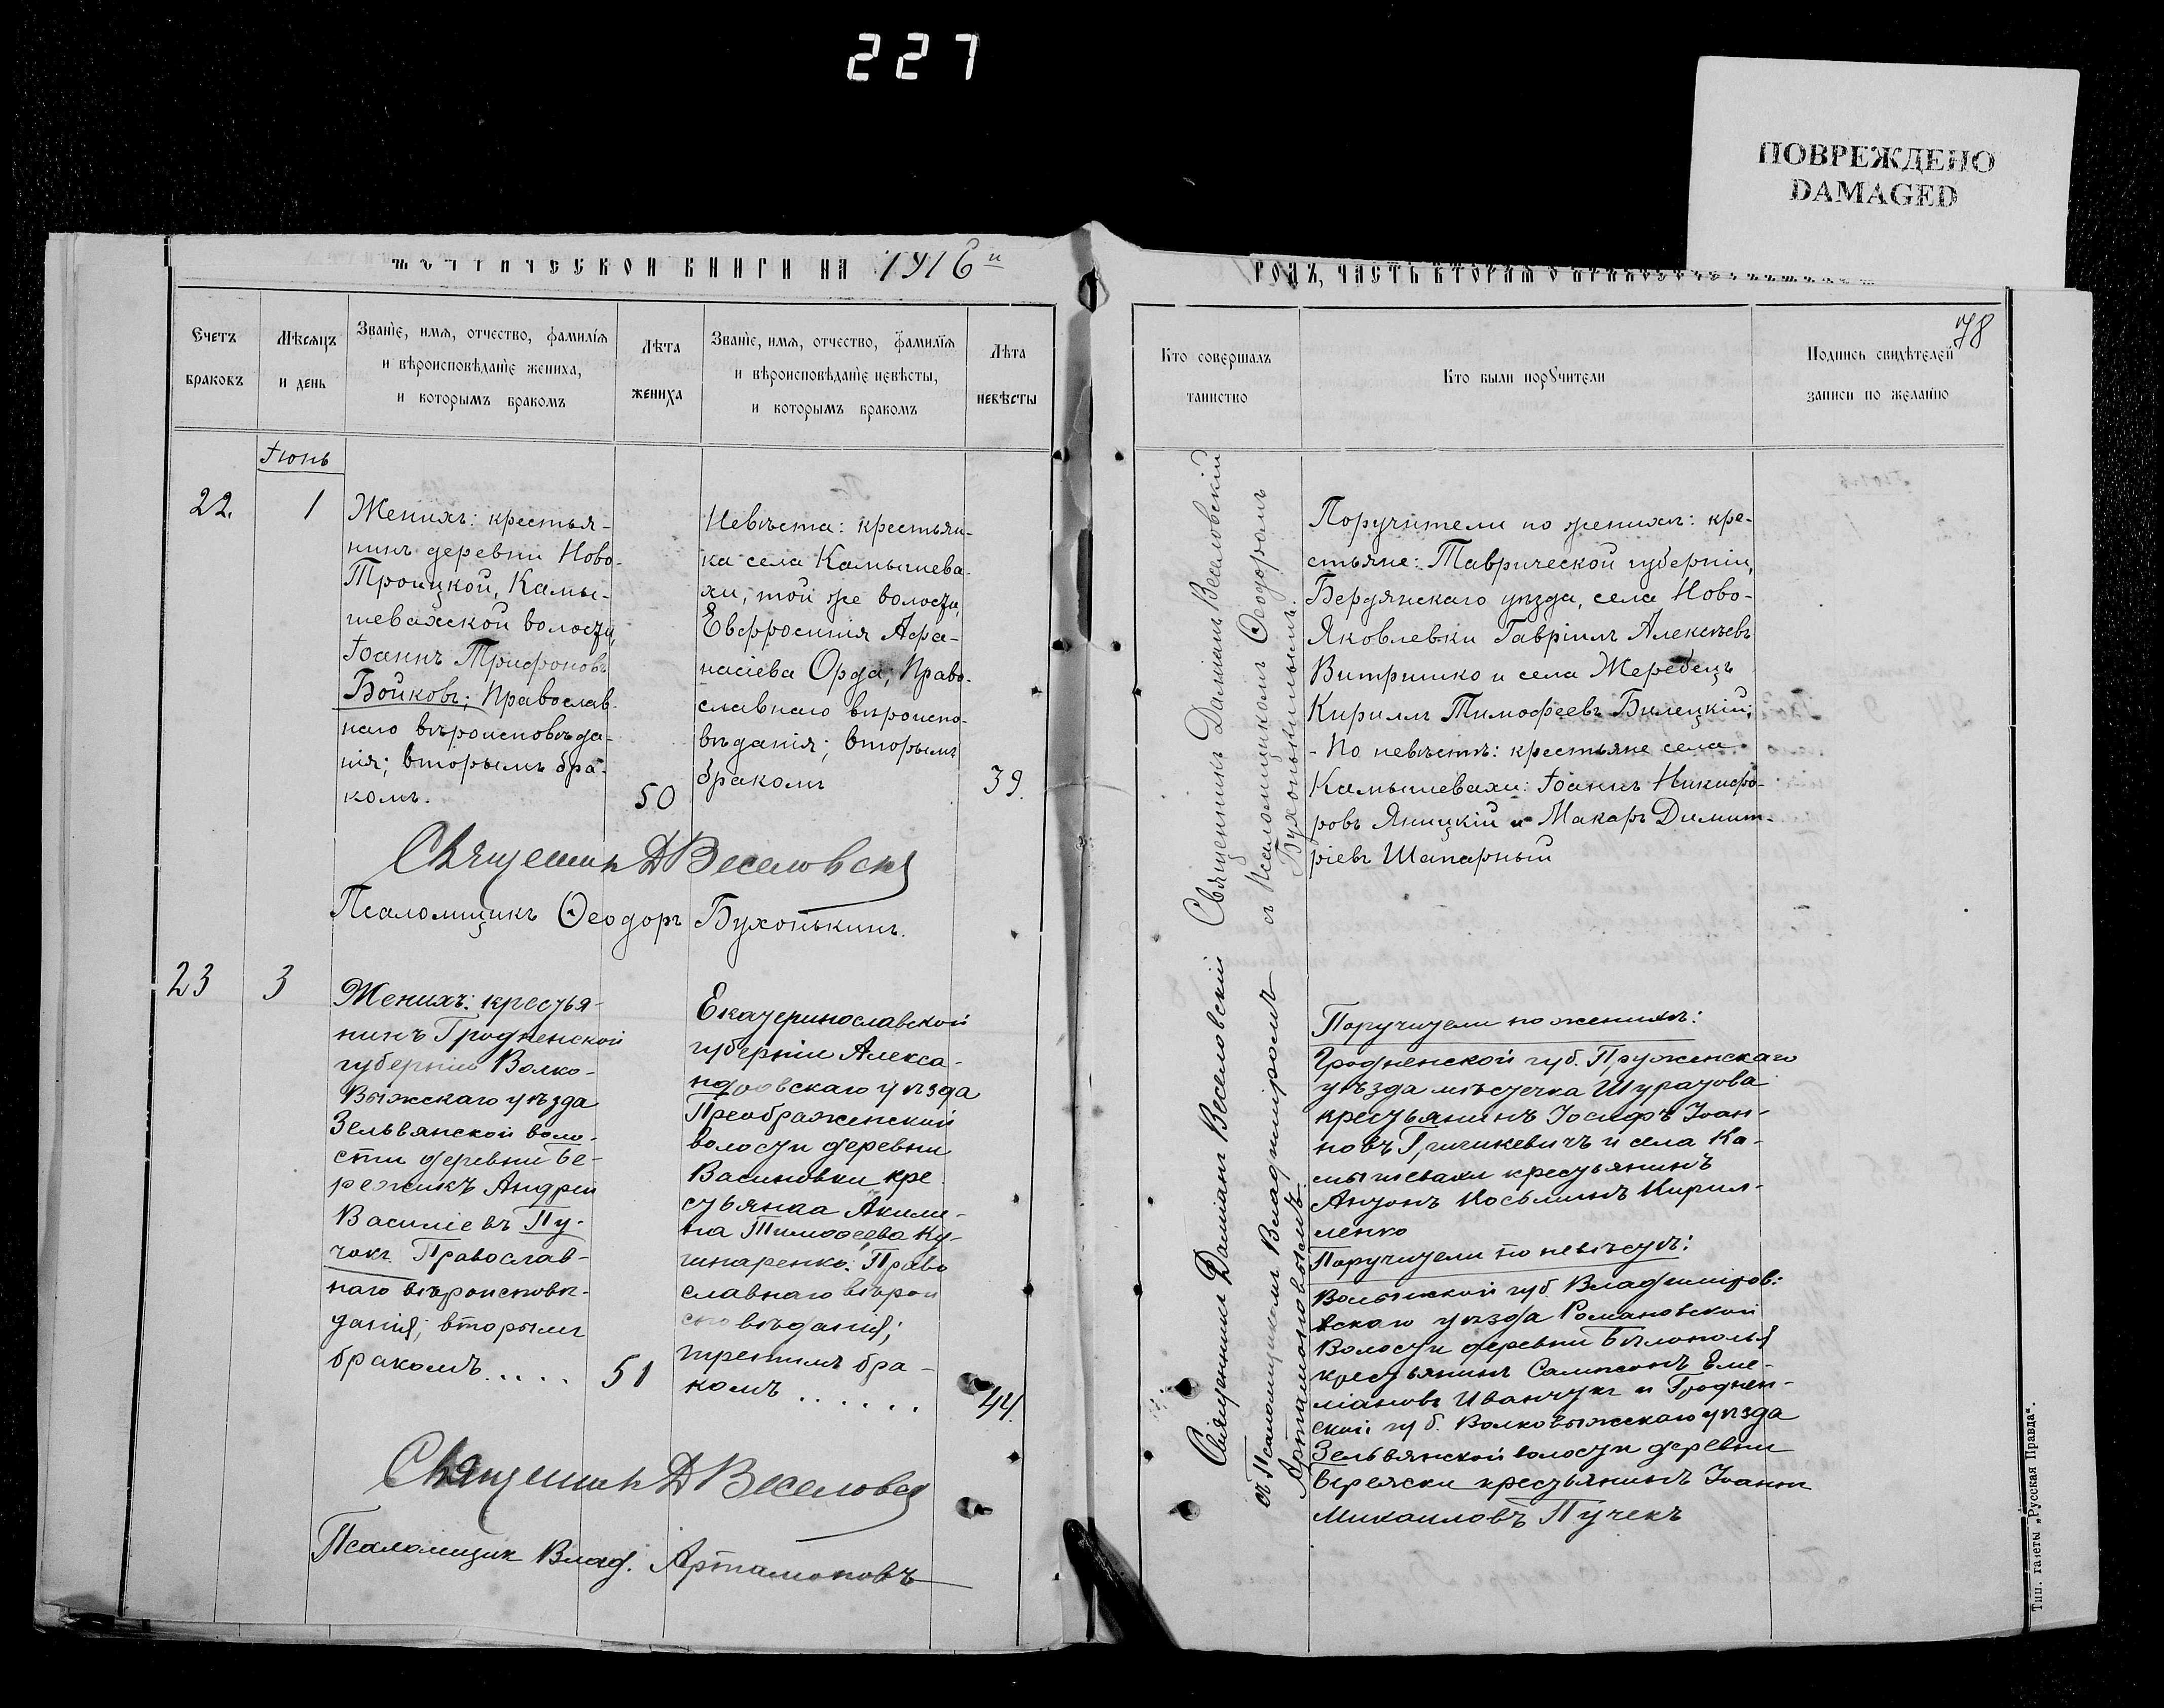 227
ПОВРЕЖДЕНО
DAMAGED
МЕТРИЧЕСКОЙ КНИГИ НА 1916 й
Счетъ
браковъ
Мѣсяцъ
и день
Званіе, имя, отчество, фамилія
и вѣроисповѣданіе жениха,
и которымъ бракомъ
Лѣта
жениха
Званіе, имя, отчество, фамилія
и вѣроисповѣданіе невѣсты,
и которымъ бракомъ
Лѣта
невѣсты
Іюнь
22.
1
Женихъ: крестья-
нинъ деревни Ново-
Троицкой, Камы-
шевахской волости,
Іоаннъ Трифоновъ
Бойковъ; Православ-
наго вѣроисповѣда-
нія; вторымъ бра-
комъ.
50
Невѣста: крестьян-
ка села Камышева-
хи, той же волости,
Евфросинія Афа-
насіева Орда; Право-
славнаго вѣроиспо-
вѣданія; вторымъ
бракомъ
39.
Священникъ Д Веселовскій
Псаломщикъ Ѳеодоръ Бухонькинъ.
23
3
Женихъ: крестья-
нинъ Гродненской
губерніи Волко-
выжскаго уѣзда
Зельвянской воло-
сти деревни Бе-
режикъ Андрей
Василіевъ Пу-
чокъ Православ-
наго вѣроисповѣ-
данія; вторымъ
бракомъ.....
51
Екатеринославской
губерніи Алекса-
ндровскаго уѣзда
Преображенской
волости деревни
Васиновки кре
стьянка Акили-
на Тимоѳеева Ку-
шнаренко: Право
славнаго вѣрои
сповѣданія;
третимъ бра-
комъ......
44.
Священникъ Д Веселовск
Псаломщик Влад. Артамоновъ
ГОДЪ, ЧАСТЬ ВТОРАЯ О
78
Кто совершалъ
таинство
Кто были поручители
Подпись свидѣтелей
записи по желанію
Священникъ Даміанъ Веселовскій
съ Псаломщикомъ Ѳеодоромъ
Бухонькинымъ.
Поручители по женихѣ: кре-
стьяне: Таврической губерніи,
Бердянскаго уѣзда, села Ново-
Яковлевки Гавріилъ Алексѣевъ
Витришко и села Жеребецъ
Кириллъ Тимофеевъ Билецкій;
- По невѣстѣ: крестьяне села
Камышевахи: Іоаннъ Никифо-
ровъ Яницкій и Макаръ Димит-
ріевъ Шапарный
Священникъ Даміанъ Веселовскій
съ Псаломщикомъ Владиміромъ
Артамоновымъ
Поручители по женихѣ:
Гродненской губ. Пруженскаго
уѣзда мѣстечка Шуратова
крестьянинъ Іосифъ Іоан-
новъ Гришкевичъ и села Ка-
мышевахи крестьянинъ
Антонъ Косьминъ Кирил-
ленко
Поручители по невѣстѣ:
Волынской губ. Владимiров-
скаго уѣзда Романовской
Волости деревни Бѣлополья
крестьянинъ Сампсонъ Еме-
ліановъ Иванчукъ и Гроднен-
ской губ. Волковыжскаго уѣзда
Зельвянской волости деревни
Бережки крестьянинъ Іоаннъ
Михаиловъ Пучекъ
Тип. газеты „Русская Правда“.